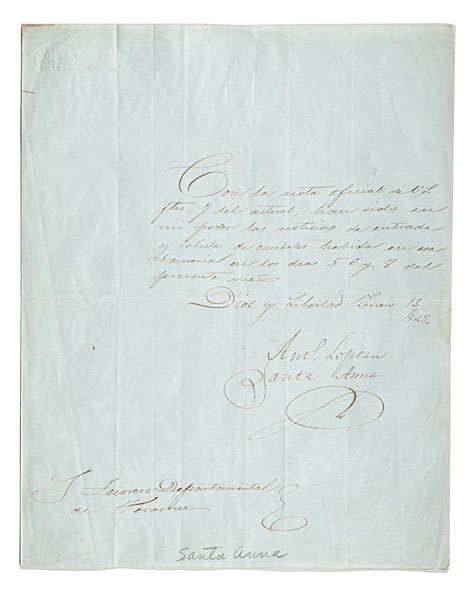 Con la nota oficial de V.S.
fha 7 del actual, han sido en
mi poder las noticias de entrada
y salida de caudales habida en esa
Tesoreria en los dias 5 6 y 7 del
presente mes
Dios y Libertad 13
Ant.º Lopez de
Santa Anna
S. Tesorero Departamental
de Veracruz
Santa Anna